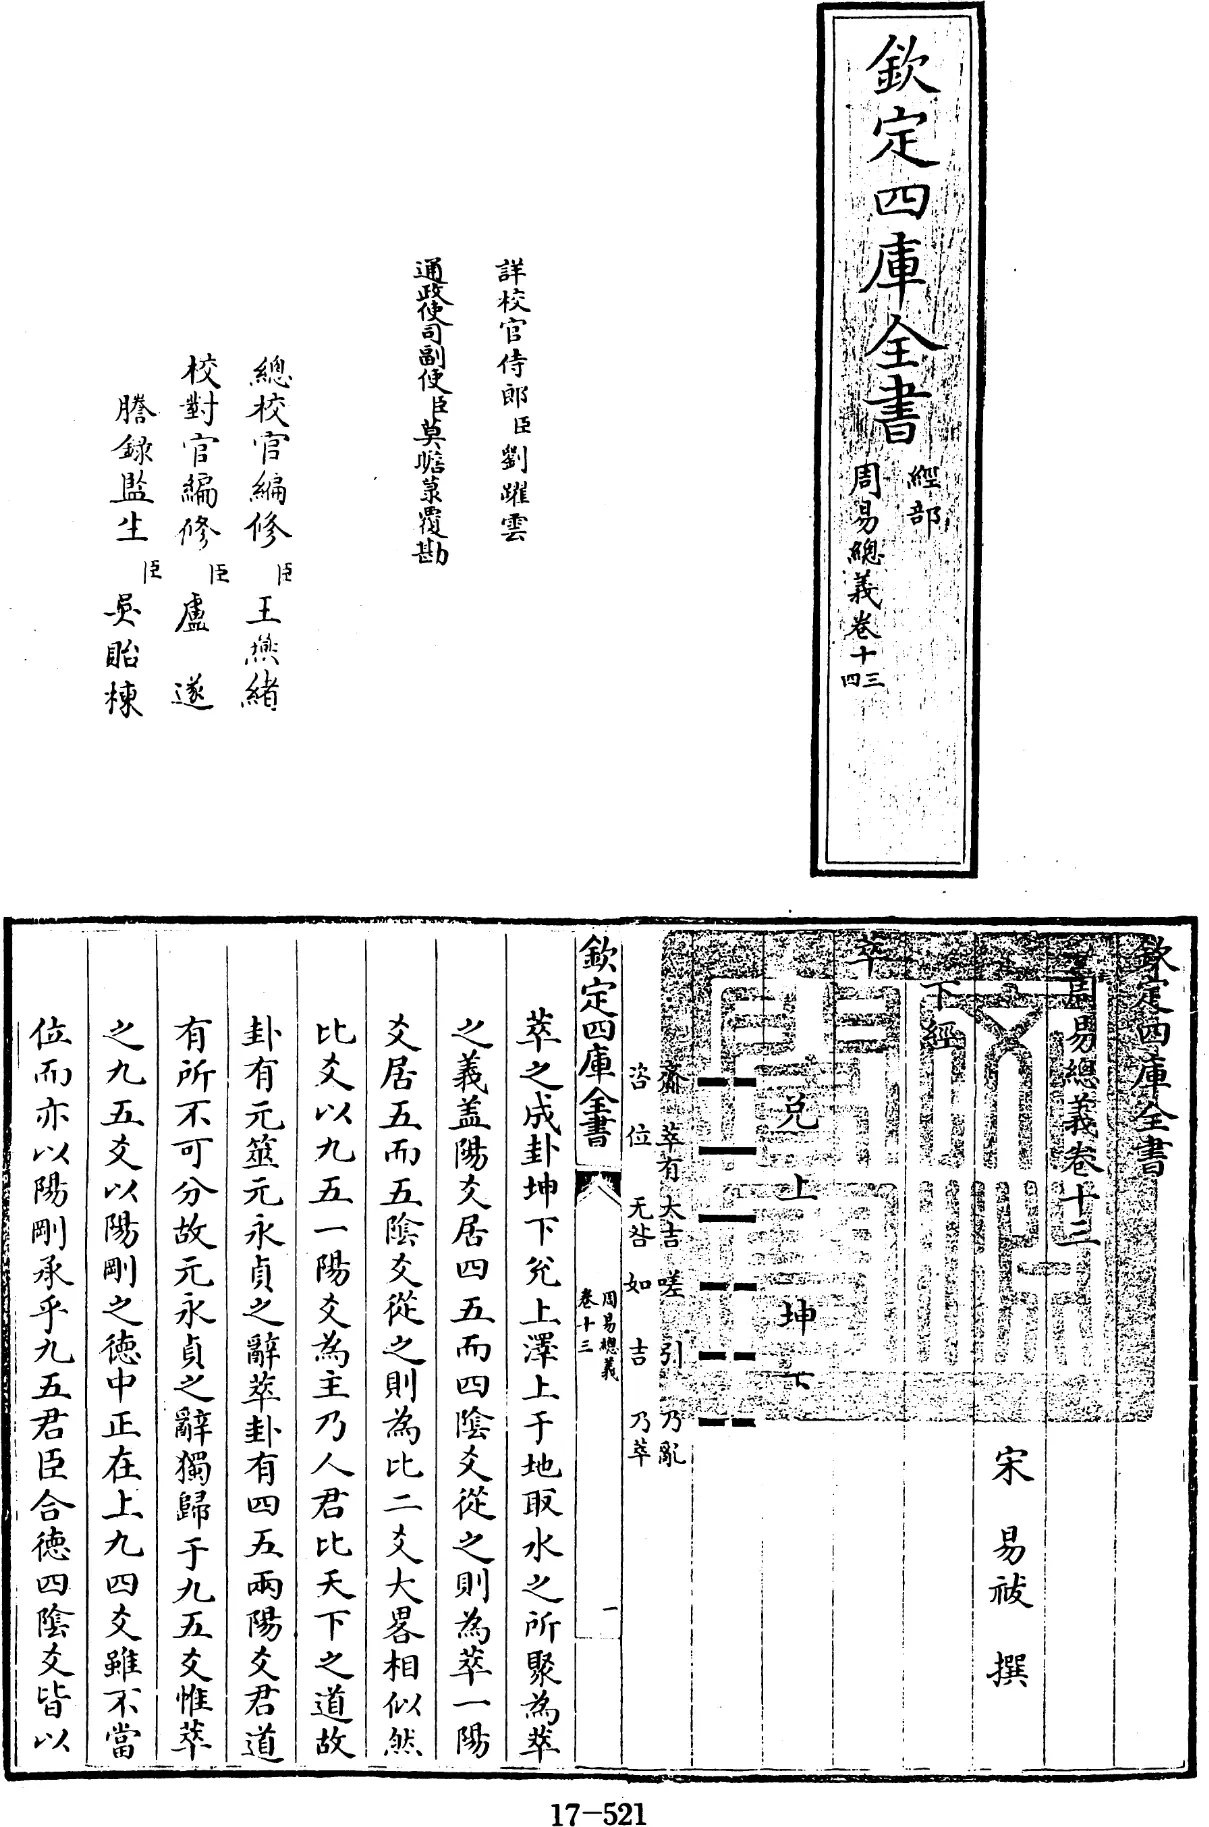 欽定四庫全書
經部
周易總義卷十三
四
詳校官侍郎臣劉躍雲
通政使司副使臣莫瞻菉覆勘
總校官編修臣王燕緒
校對官編修臣盧遂
謄錄監生臣吳貽棟
欽定四庫全書
周易總義卷十三
宋易祓撰
下經
萃
兌上坤下
齋 萃有 大吉 嗟 引 乃亂
咨 位 无咎 如 吉 乃萃
欽定四庫全書
周易總義
卷十三
一
萃之成卦坤下兌上澤上于地取水之所聚為萃
之義蓋陽爻居四五而四陰爻從之則為萃一陽
爻居五而五陰爻從之則為比二爻大畧相似然
比爻以九五一陽爻為主乃人君比天下之道故
卦有元筮元永貞之辭萃卦有四五兩陽爻君道
有所不可分故元永貞之辭獨歸于九五爻惟萃
之九五爻以陽剛之德中正在上九四爻雖不當
位而亦以陽剛承乎九五君臣合德四陰爻皆以
17-521